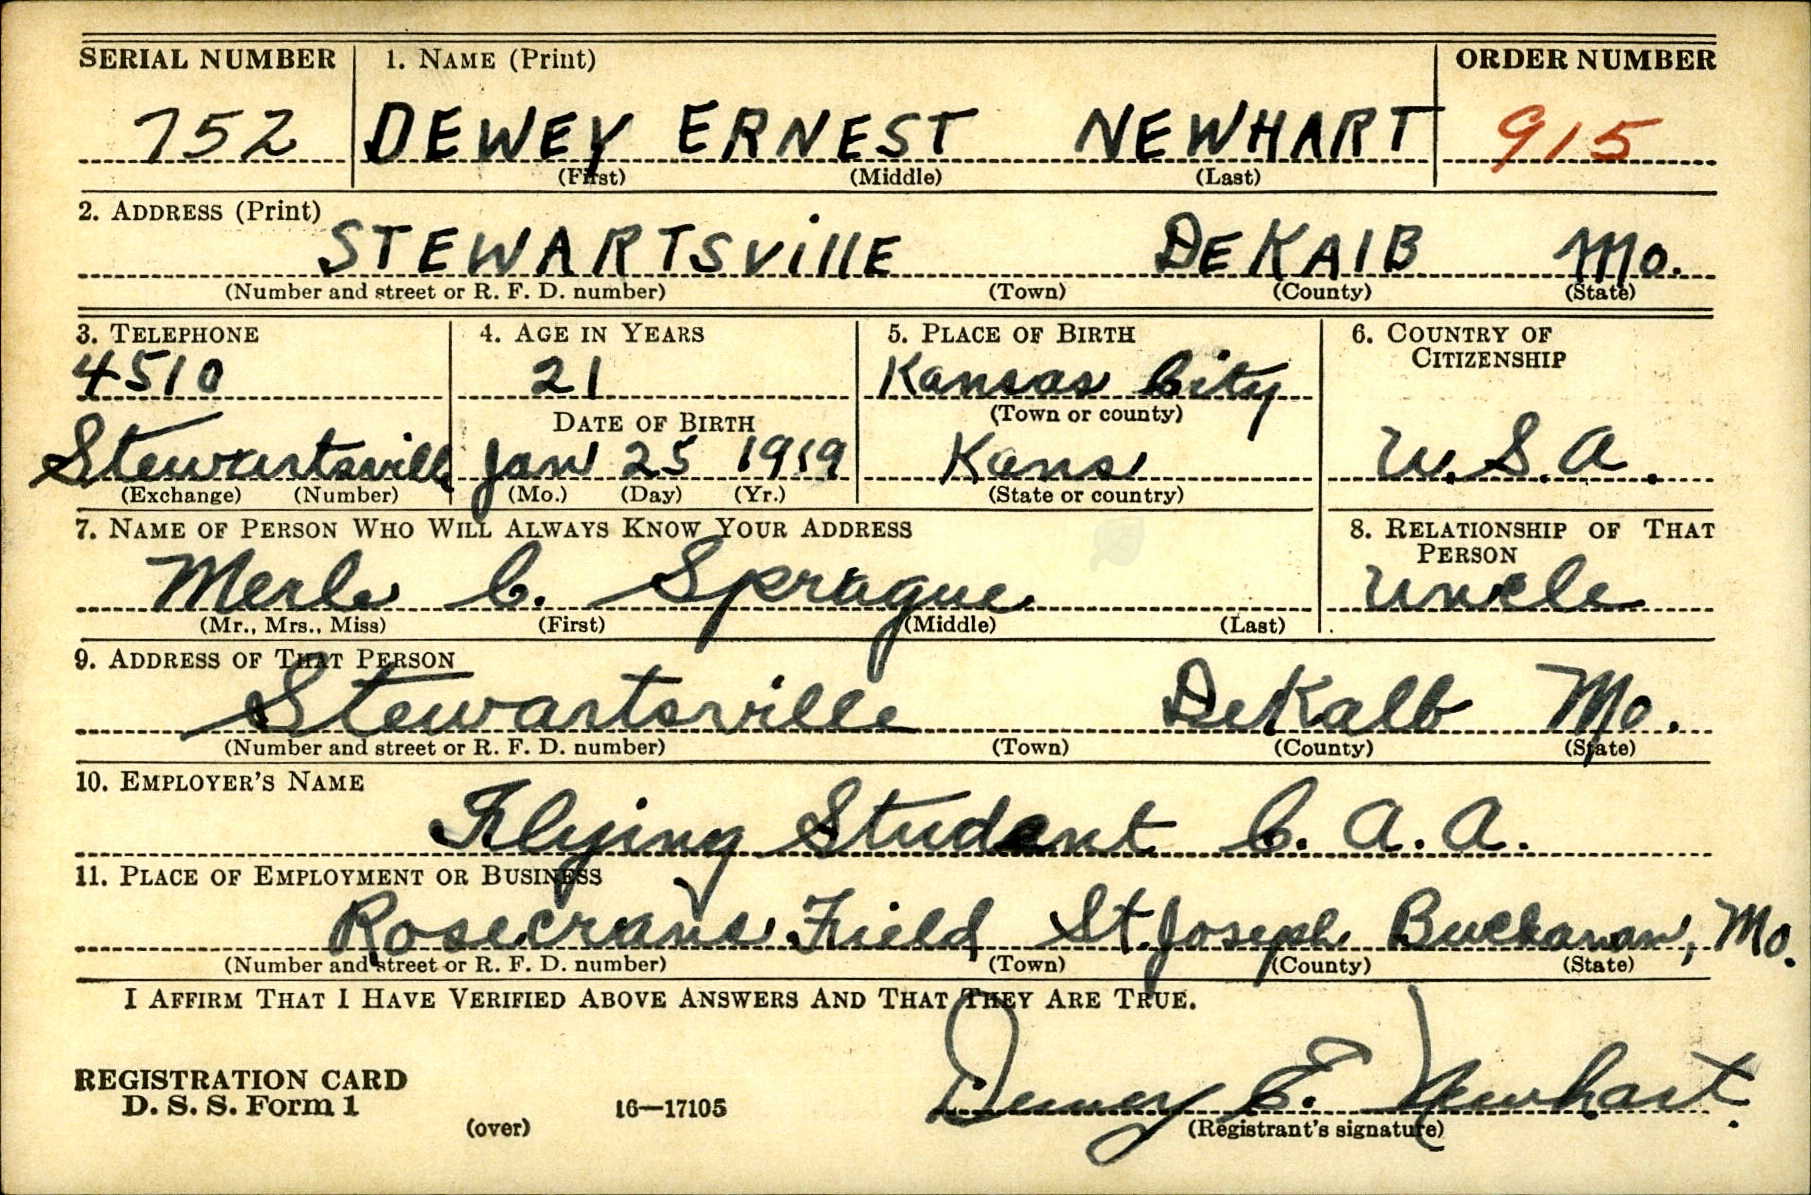 SERIAL NUMBER 1. NAME (Print) ORDER NUMBER
752 DEWEY ERNEST NEWHART 915
(First) (Middle) (Last)
2. ADDRESS (Print)
STEWARTSVillE DEKAlB Mo.
(Number and street or R. F. D. number) (Town) (County) (State)
3. TELEPHONE 4. AGE IN YEARS 5. PLACE OF BIRTH 6. COUNTRY OF CITIZENSHIP
4510 21 Kansas City
DATE OF BIRTH (Town or county)
Stewartsville Jan 25 1919 Kans U.S.A.
(Exchange) (Number) (Mo.) (Day) (Yr.) (State or country)
7. NAME OF PERSON WHO WILL ALWAYS KNOW YOUR ADDRESS 8. RELATIONSHIP OF THAT PERSON
Merle C. Sprague Uncle
(Mr., Mrs., Miss) (First) (Middle) (Last)
9. ADDRESS OF THAT PERSON
Stewartsville DeKalb Mo.
(Number and street or R. F. D. number) (Town) (County) (State)
10. EMPLOYER'S NAME
Flying Student C. A. A.
11. PLACE OF EMPLOYMENT OR BUSINESS
Rosecrans Field St. Joseph Buchanan, Mo.
(Number and street or R. F. D. number) (Town) (County) (State)
I AFFIRM THAT I HAVE VERIFIED ABOVE ANSWERS AND THAT THEY ARE TRUE.
REGISTRATION CARD
D. S. S. Form 1 16—17105 Dewey E. Newhart.
(over) (Registrant's signature)